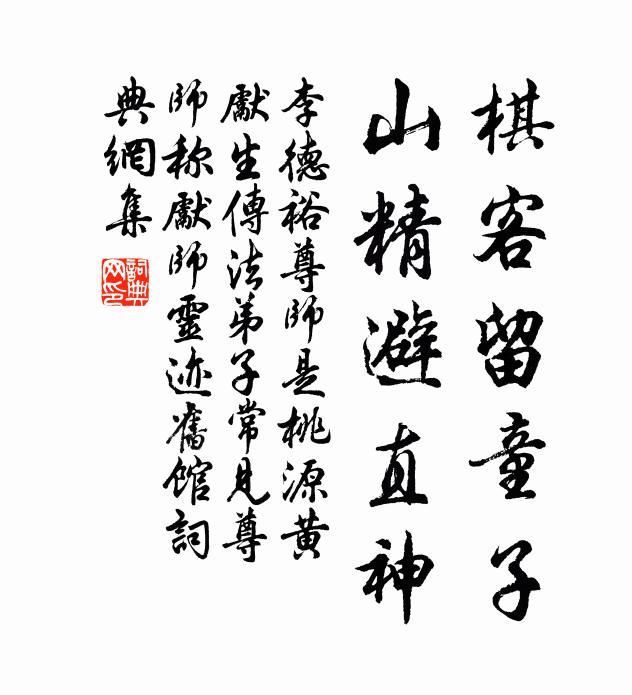 棋客留童子
山精避直神
李德裕尊師是桃源黄
獻生傳法弟子常見尊
師称獻師靈迹舊馆詞
典網集
詞典
网印